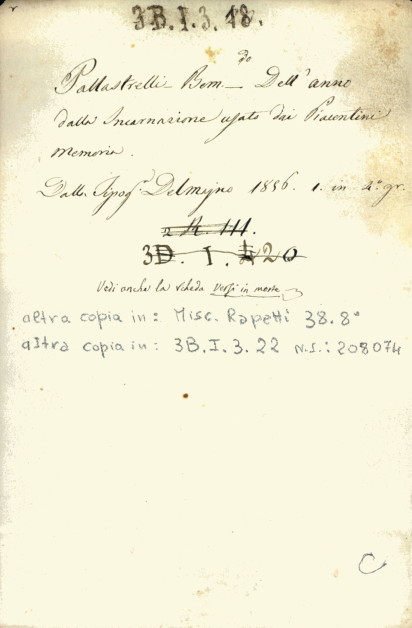 3B.I.3.18.
Pallastrelli Bern.do Dell'anno
dalla Incarnazione usato dai Piacentini
memoria.
Dalla Tipog. Delmajno 1856. 1. in 4° gr.
2 R. III.
3D. I. 220
Vedi anche la scheda Versi in morte
altra copia in: Misc. Rapetti 38.8°
altra copia in: 3B.I.3.22 N.I.: 208074
C